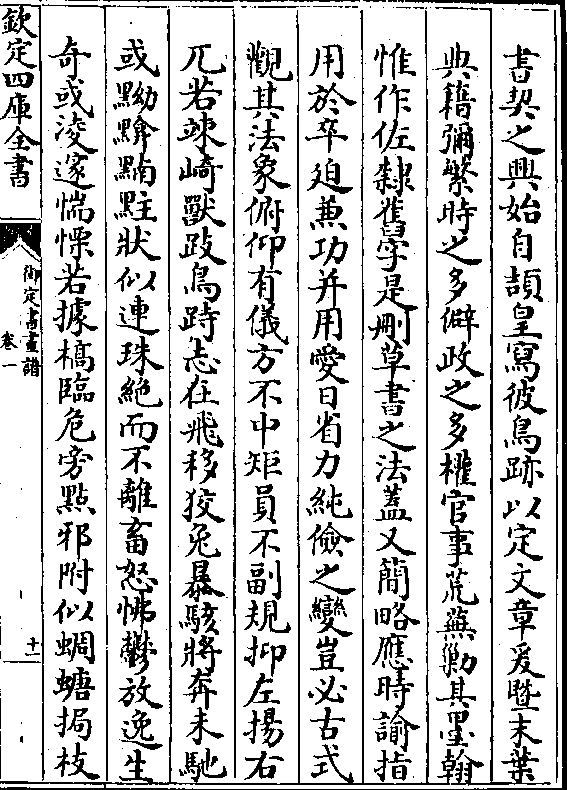 書契之興始自頡皇寫彼鳥跡以定文章爰暨末葉
典籍彌繁時之多僻政之多權官事荒蕪勦其墨翰
惟作佐隸舊字是刪草書之法蓋又簡略應時諭指
用於卒廹兼功并用愛日省力純儉之變豈必古式
觀其法象俯仰有儀方不中矩員不副規抑左揚右
兀若竦崎獸跂鳥跱志在飛移狡兎暴駭將奔未馳
或黝黭點黈狀似連珠絶而不離畜怒怫鬱放逸生
奇或淩邃惴慄若據槁臨危旁點邪附似蜩螗挶枝
欽定四庫全書
御定書畫譜
卷一
十一